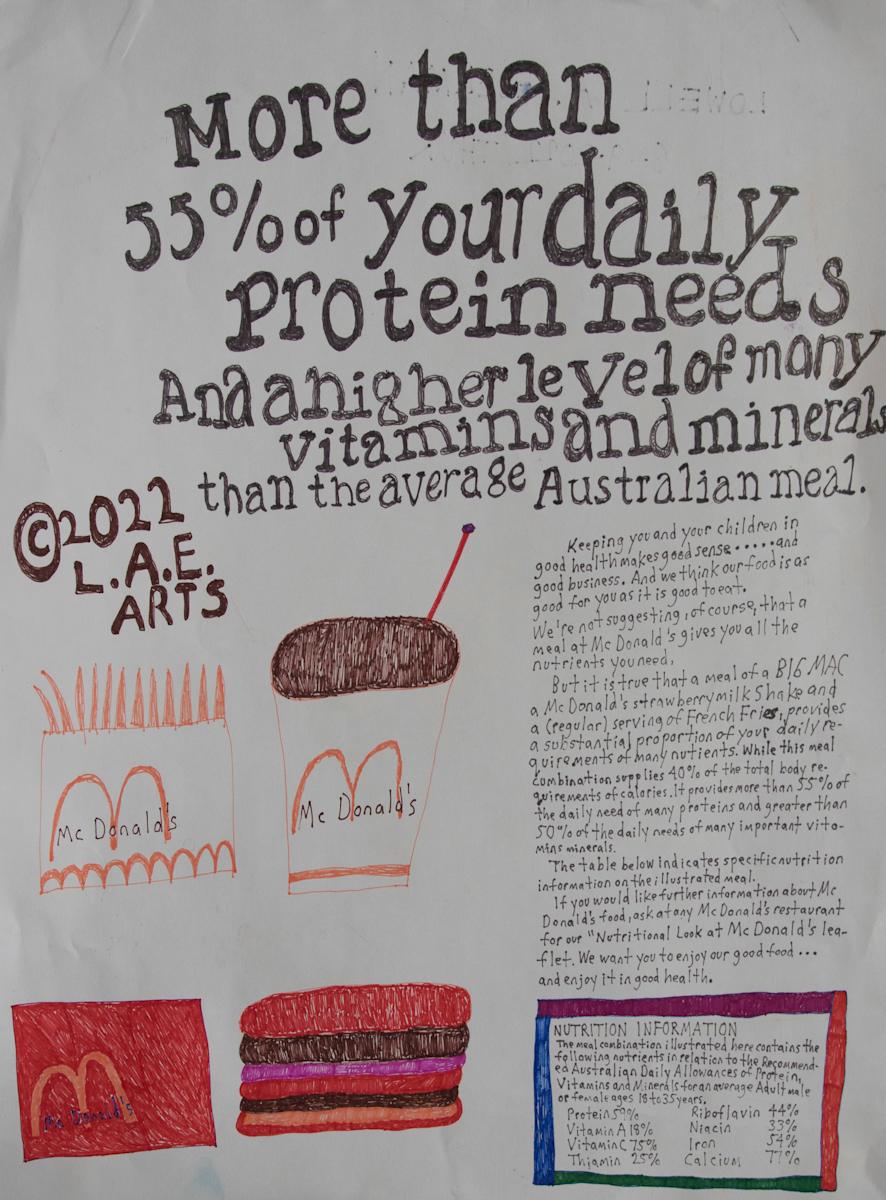 More than
55% of your daily
Protein needs
And a higher level of many
vitamins and minerals
than the average Australian meal.
©2022
L.A.E.
ARTS
Mc Donald's
Mc Donald's
Mc Donald's
Keeping you and your children in
good health makes good sense.....and
good business. And we think our food is as
good for you as it is good to eat.
We're not suggesting, of course, that a
meal at Mc Donald's gives you all the
nutrients you need.
But it is true that a meal of a BIG MAC
a Mc Donald's strawberry milk Shake and
a (regular) serving of French Fries, provides
a substantial proportion of your daily re-
quirements of many nutients. While this meal
combination supplies 40% of the total body re-
quirements of calories. It provides more than 55% of
the daily need of many proteins and greater than
50% of the daily needs of many important vita-
mins minerals.
The table below indicates specific nutrition
information on the illustrated meal.
If you would like further information about Mc
Donald's food, ask at any McDonald's restaurant
for our "Nutritional Look at Mc Donald's lea-
flet. We want you to enjoy our good food...
and enjoy it in good health.
NUTRITION INFORMATION
The meal combination illustrated here contains the
following nutrients in relation to the Recommend-
ed Australian Daily Allowances of Protein,
Vitamins and Minerals for an average Adult male
or female ages 18 to 35 years.
Protein 59% Riboflavin 44%
Vitamin A 18% Niacin 33%
Vitamin C 75% Iron 54%
Thiamin 25% Calcium 77%